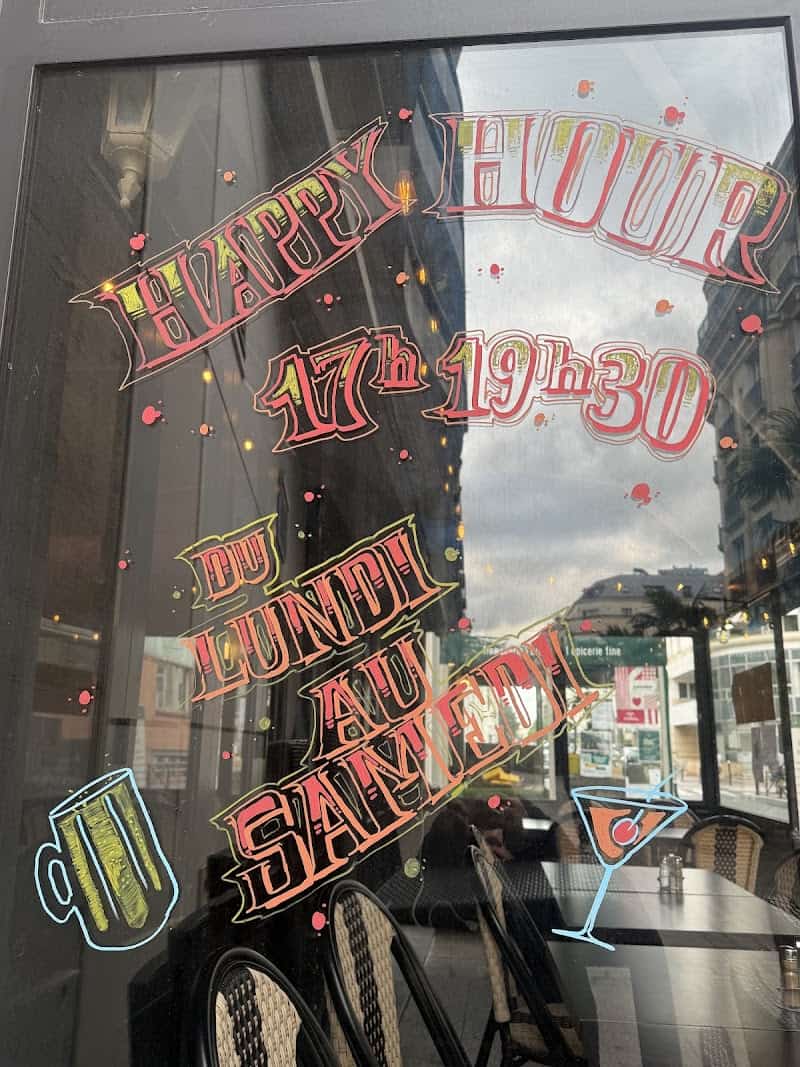 HAPPY HOUR
17h 19h30
DU
LUNDI
AU
SAMEDI
épicerie fine